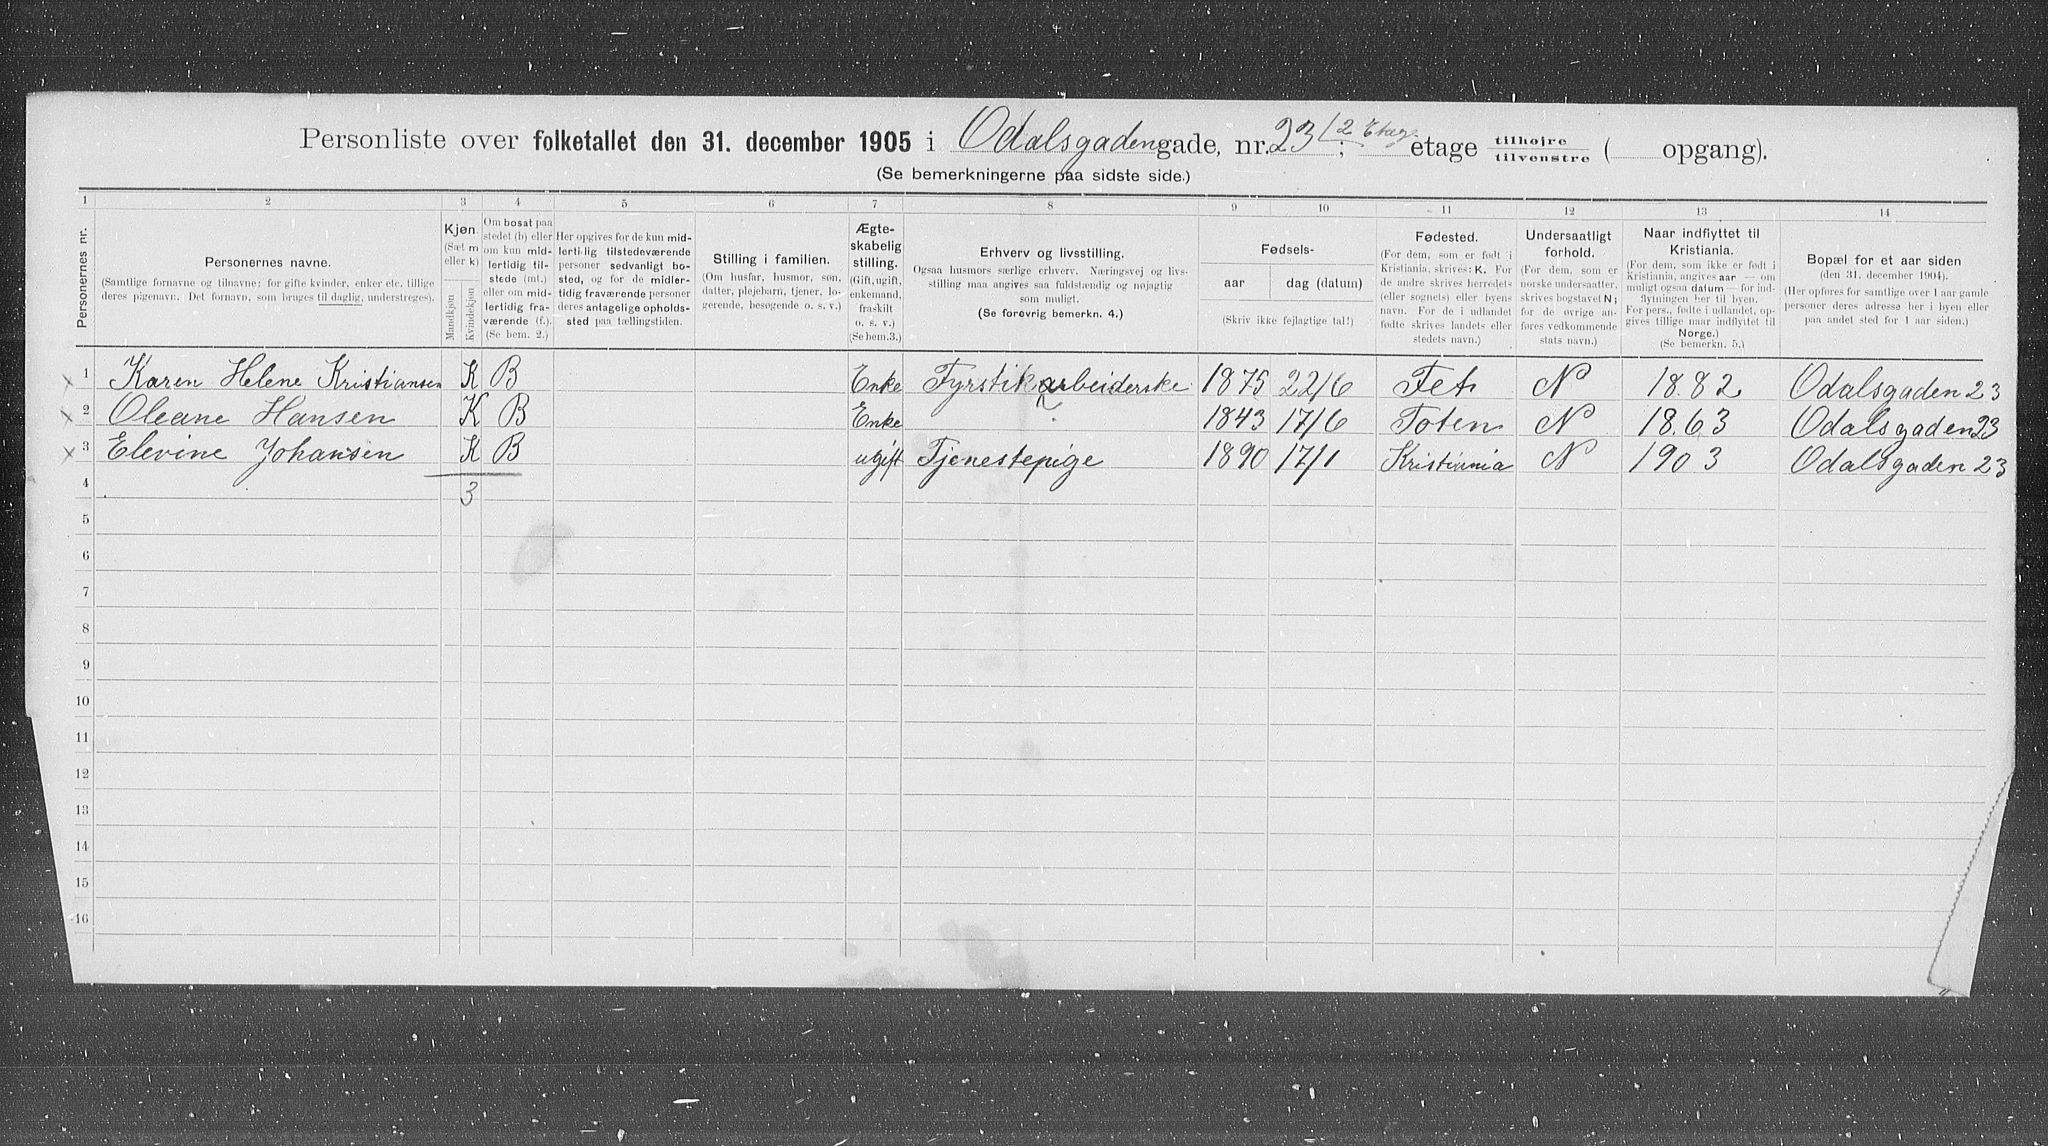 Personliste over folketallet den 31. december 1905 i Odalsgadengade, nr. 23 / 2 Etage; etage tilhøjre tilvenstre ( opgang).
(Se bemerkningerne paa sidste side.)
1 2 3 4 5 6 7 8 9 10 11 12 13 14
Personernes nr.
Personernes navne.
(Samtlige fornavne og tilnavne; for gifte kvinder, enker etc. tillige
deres pigenavn. Det fornavn, som bruges til daglig, understreges).
Kjøn.
(Sæt m
eller k)
Mandkjøn
Kvindekjøn
Om bosat paa
stedet (b) eller
om kun mid-
lertidig til-
stede (mt.)
eller om mid-
lertidig fra-
værende (f.).
(Se bem. 2.)
Her opgives for de kun mid-
lertidig tilstedeværende
personer sedvanligt bo-
sted, og for de midler-
tidig fraværende personer
deres antagelige opholds-
sted paa tællingstiden.
Stilling i familien.
(Om husfar, husmor, søn,
datter, plejebarn, tjener, lo-
gerende, besøgende o. s. v.)
Ægte-
skabelig
stilling.
(Gift, ugift,
enkemand,
fraskilt
o. s. v.)
(Se bem.3.)
Erhverv og livsstilling.
Ogsaa husmors særlige erhverv. Næringsvej og livs-
stilling maa angives saa fuldstændig og nøjagtig
som muligt.
(Se forøvrig bemerkn. 4.)
Fødsels-
aar dag (datum)
(Skriv ikke fejlagtige tal!)
Fødested.
(For dem, som er født i
Kristiania, skrives: K. For
de andre skrives herredets
(eller sognets) eller byens
navn. For de i udlandet
fødte skrives landets eller
stedets navn.)
Undersaatligt
forhold.
(For dem, som er
norske undersaatter,
skrives bogstavet N;
for de øvrige an-
føres vedkommende
stats navn.)
Naar indflyttet til
Kristiania.
(For dem, som ikke er født i
Kristiania, angives aar — om
muligt ogsaa datum — for ind-
flytningen her til byen.
For pers., fødte i udlandet, op-
gives tillige naar indflyttet til
Norge.)
(Se bemerkn. 5.)
Bopæl for et aar siden
(den 31. december 1904).
(Her opføres for samtlige over 1 aar gamle
personer deres adresse her i byen eller
paa andet sted for 1 aar siden.)
x 1 Karen Helene Kristiansen K B Enke Fyrstikarbeiderske 1875 22/6 Fet N 1882 Odalsgaden 23
x 2 Oleane Hansen K B Enke ? 1843 17/6 Toten N 1863 Odalsgaden 23
x 3 Elevine Johansen K B ugift Tjenestepige 1890 17/1 Kristiania N 1903 Odalsgaden 23
4 3
5
6
7
8
9
10
11
12
13
14
15
16